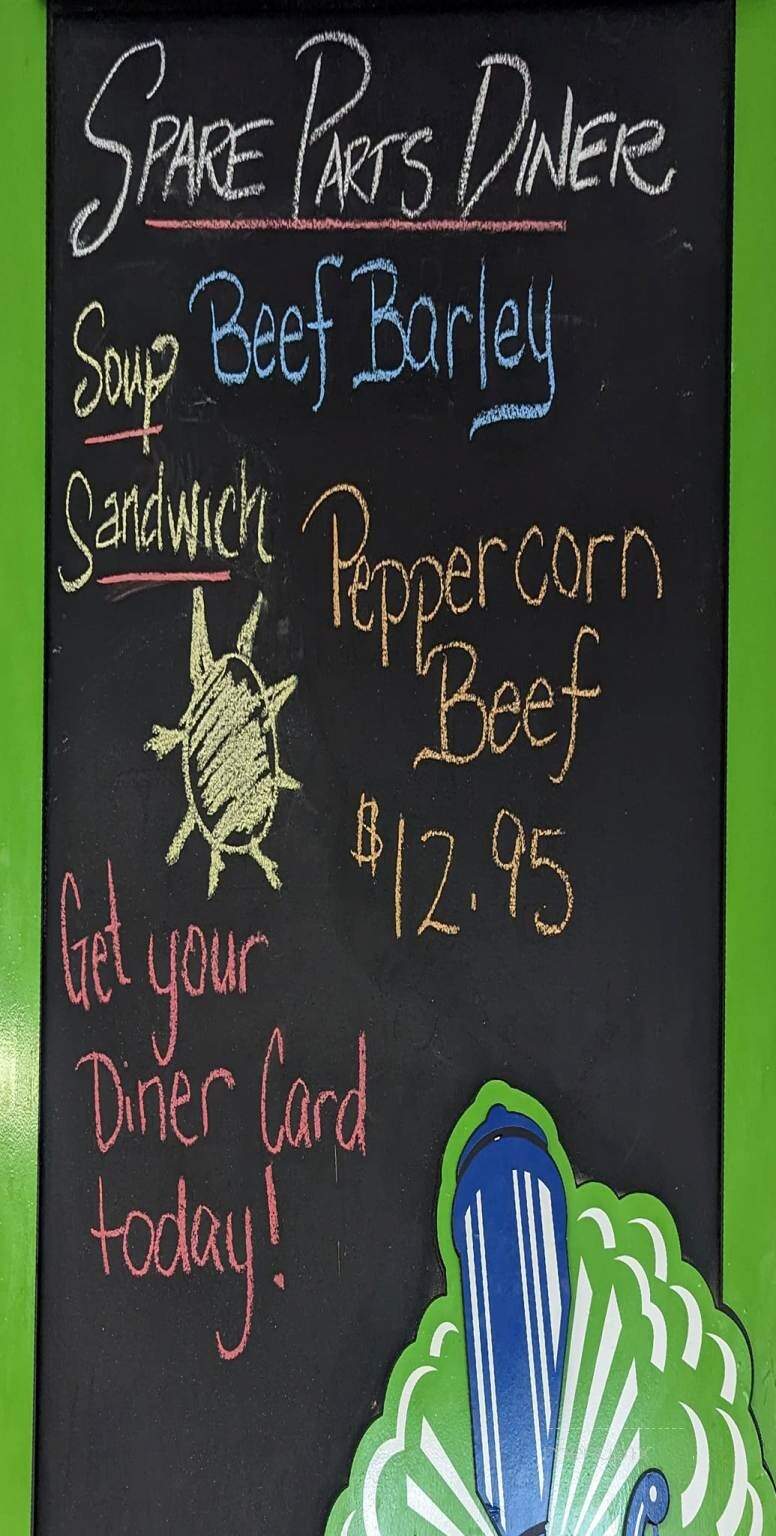 SPARE PARTS DINER
Soup Beef Barley
Sandwich Peppercorn
Beef
$12.95
Get your
Diner Card
today!